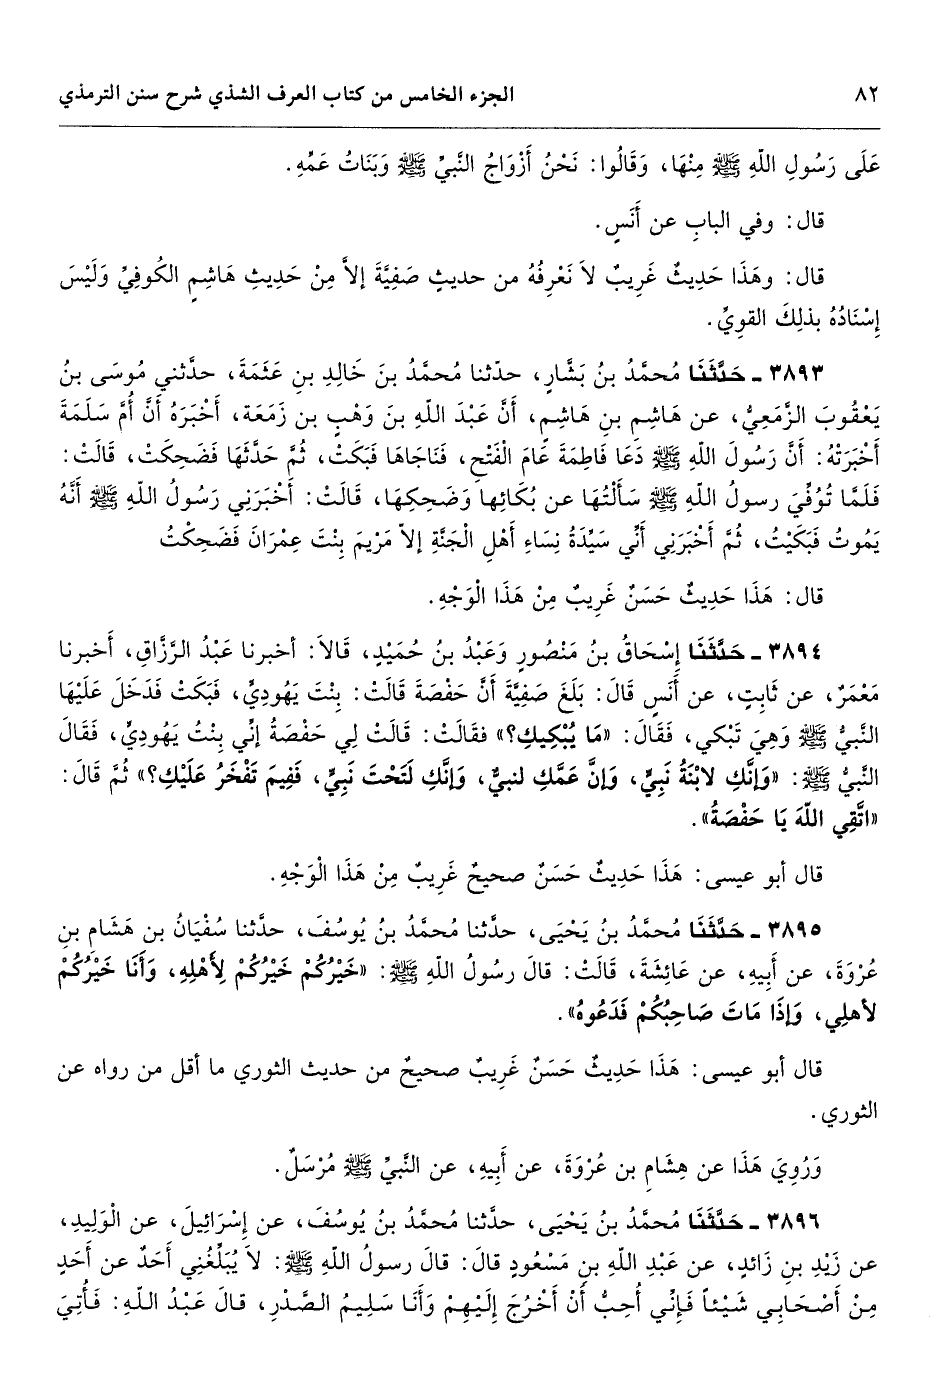 ٨٢ الجزء الخامس من كتاب العرف الشذي شرح سنن الترمذي
عَلَى رَسُولِ اللّهِ ﷺ مِنْهَا، وَقَالُوا: نَحْنُ أَزْوَاجُ النَّبيِّ ﷺ وَبَنَاتُ عَمِّهِ.
قال: وفي البابِ عن أَنَسٍ.
قال: وهَذَا حَدِيثٌ غَرِيبٌ لاَ نَعْرِفُهُ من حديثِ صَفِيَّةَ إلاَّ مِنْ حَدِيثِ هَاشِمٍ الكُوفِيِّ وَلَيْسَ
إِسْنَادُهُ بذلِكَ القويِّ.
٣٨٩٣ ـ حَدَّثَنَا مُحمَّدُ بنُ بَشَّارٍ، حدّثنا مُحمَّدُ بنَ خَالِدِ بنِ عَثمَةَ، حدَّثني مُوسَى بنُ
يَعْقُوبَ الزَّمَعِيُّ، عن هَاشِمِ بنِ هَاشِمٍ، أَنَّ عَبْدَ اللهِ بنَ وَهْبِ بن زَمَعَة، أَخْبَرَهُ أَنَّ أُمَّ سَلَمَةَ
أَخْبَرَتْهُ: أَنَّ رَسُولَ اللّهِ ﷺ دَعَا فَاطِمَةَ عَامَ الْفَتْحِ، فَنَاجَاهَا فَبَكَتْ، ثُمَّ حَدَّثَهَا فَضَحِكَتْ، قَالَتْ:
فَلَمَّا تُوُفِّيَ رسولُ اللّهِ ﷺ سَأَلْتُهَا عن بُكَائِها وَضَحِكِهَا، قَالَتْ: أَخْبَرَنِي رَسُولُ اللّهِ ﷺ أَنَّهُ
يَمُوتُ فَبَكَيْتُ، ثُمَّ أَخْبَرَنِي أَنِّي سَيِّدَةُ نِسَاءِ أَهْلِ الْجَنَّةِ إلاّ مَرْيمَ بِنْتَ عِمْرَانَ فَضَحِكْتُ
قال: هَذَا حَدِيثٌ حَسَنٌ غَرِيبٌ مِنْ هَذَا الْوَجْهِ.
٣٨٩٤ ـ حَدَّثَنَا إِسْحَاقُ بنُ مَنْصُورٍ وَعَبْدُ بنُ حُمَيْدٍ، قَالاَ: أخبرنا عَبْدُ الرَّزَّاقِ، أَخبرنا
مَعْمَرٌ، عن ثَابِتٍ، عن أَنَسٍ قَالَ: بَلَغَ صَفِيَّةَ أَنَّ حَفْصَةَ قَالَتْ: بِنْتَ يَهُودِيٍّ، فَبَكَتْ فَدَخَلَ عَلَيْهَا
النَّبيُّ ﷺ وَهِيَ تَبْكي، فَقَالَ: «مَا يُبْكِيكِ؟» فقَالَتْ: قَالَتْ لِي حَفْصَةُ إنِّي بِنْتُ يَهُودِيٍّ، فَقَالَ
النَّبيُّ ﷺ: «وَإِنَّكِ لابْنَةُ نَبِيٍّ، وَإِنَّ عَمَّكِ لنبيٌّ، وَإِنَّكِ لَتَحْتَ نَبِيٍّ، فَفِيمَ تَفْخَرُ عَلَيْكِ؟» ثُمَّ قَالَ:
«اتَّقِي اللَّهَ يَا حَفْصَةُ».
قال أبو عيسى: هَذَا حَدِيثٌ حَسَنٌ صحيحٌ غَرِيبٌ مِنْ هَذَا الْوَجْهِ.
٣٨٩٥ ـ حَدَّثَنَا مُحمَّدُ بنُ يَحْيَى، حدَّثنا مُحمَّدُ بنُ يُوسُفَ، حدَّثنا سُفْيَانُ بن هَشَامِ بنِ
عُرْوَةَ، عن أَبِيهِ، عن عَائِشَةَ، قَالَتْ: قالَ رسُولُ اللّهِ ﷺ: «خَيْرُكُمْ خَيْرُكُمْ لِأَهْلِهِ، وَأَنَا خَيْرُكُمْ
لأهلِي، وَإذَا مَاتَ صَاحِبُكُمْ فَدَعُوهُ».
قال أبو عيسى: هَذَا حَدِيثٌ حَسَنٌ غَرِيبٌ صحيحٌ من حديث الثوري ما أقل من رواه عن
الثوري.
وَرُوِيَ هَذَا عن هِشَامِ بن عُرْوَةَ، عن أَبِيهِ، عن النَّبيِّ ﷺ مُرْسَلٌ.
٣٨٩٦ ـ حَدَّثَنَا مُحمَّدُ بنُ يَحْيَى، حدَّثنا مُحمَّدُ بنُ يُوسُفَ، عن إِسْرَائِيلَ، عن الْوَلِيدِ،
عن زَيْدِ بنِ زَائِدٍ، عن عَبْدِ اللهِ بنِ مَسْعُودٍ قالَ: قالَ رسولُ اللّهِ ﷺ: لاَ يُبَلِّغُنِي أَحَدٌ عن أَحَدٍ
مِنْ أَصْحَابِي شَيْئاً فَإِنِّي أُحِبُّ أَنْ أَخْرُجَ إِلَيْهِمْ وَأَنَا سَلِيمُ الصَّدْرِ، قالَ عَبْدُ اللهِ: فَأُتِيَ